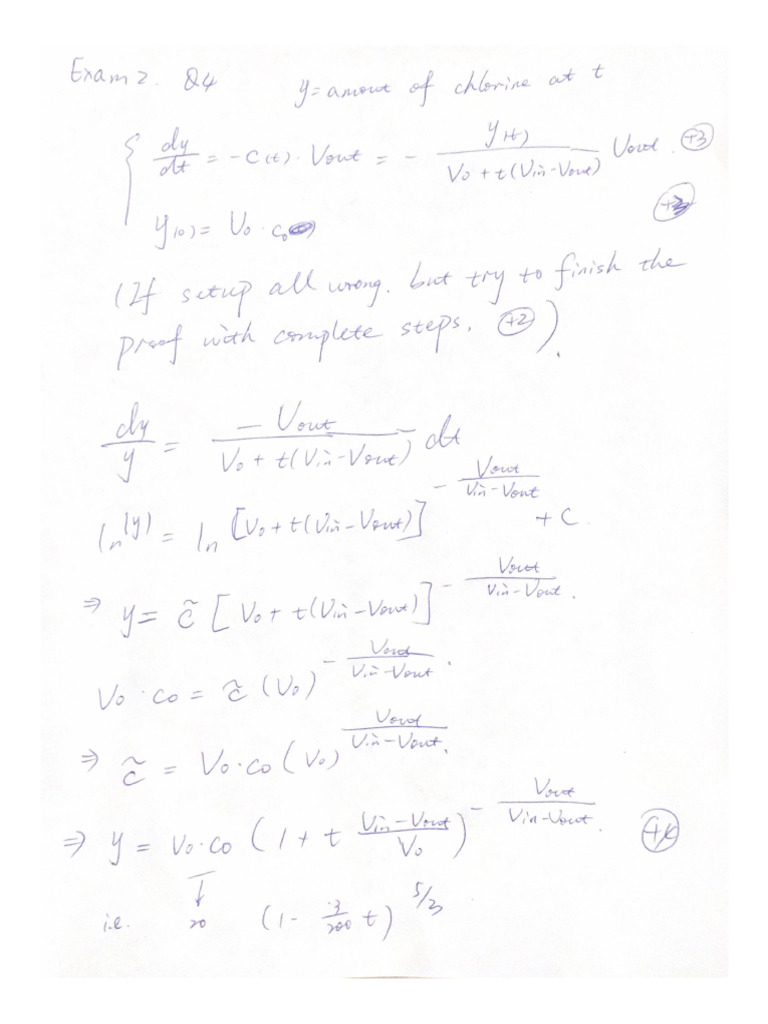 Exam 2. Q4 y = amout of chlorine at t
dy/dt = -C(t) · Vout = - y(t) / (Vo + t(Vin-Vout)) Vout. +3
y(0) = Vo · co
(If setup all wrong. but try to finish the
proof with complete steps. +2).
dy/y = -Vout / (Vo + t(Vin-Vout)) dt
ln(y) = ln [Vo + t(Vin-Vout)]^(- Vout/(Vin-Vout)) + C.
⇒ y = c̃ [Vo + t(Vin-Vout)]^(- Vout/(Vin-Vout)).
Vo · co = c̃ (Vo)^(- Vout/(Vin-Vout)).
⇒ c̃ = Vo·co (Vo)^(Vout/(Vin-Vout)).
⇒ y = Vo·co (1 + t (Vin-Vout)/Vo)^(- Vout/(Vin-Vout)).
↓
i.e. 20 (1 - 3/200 t)^(5/3)